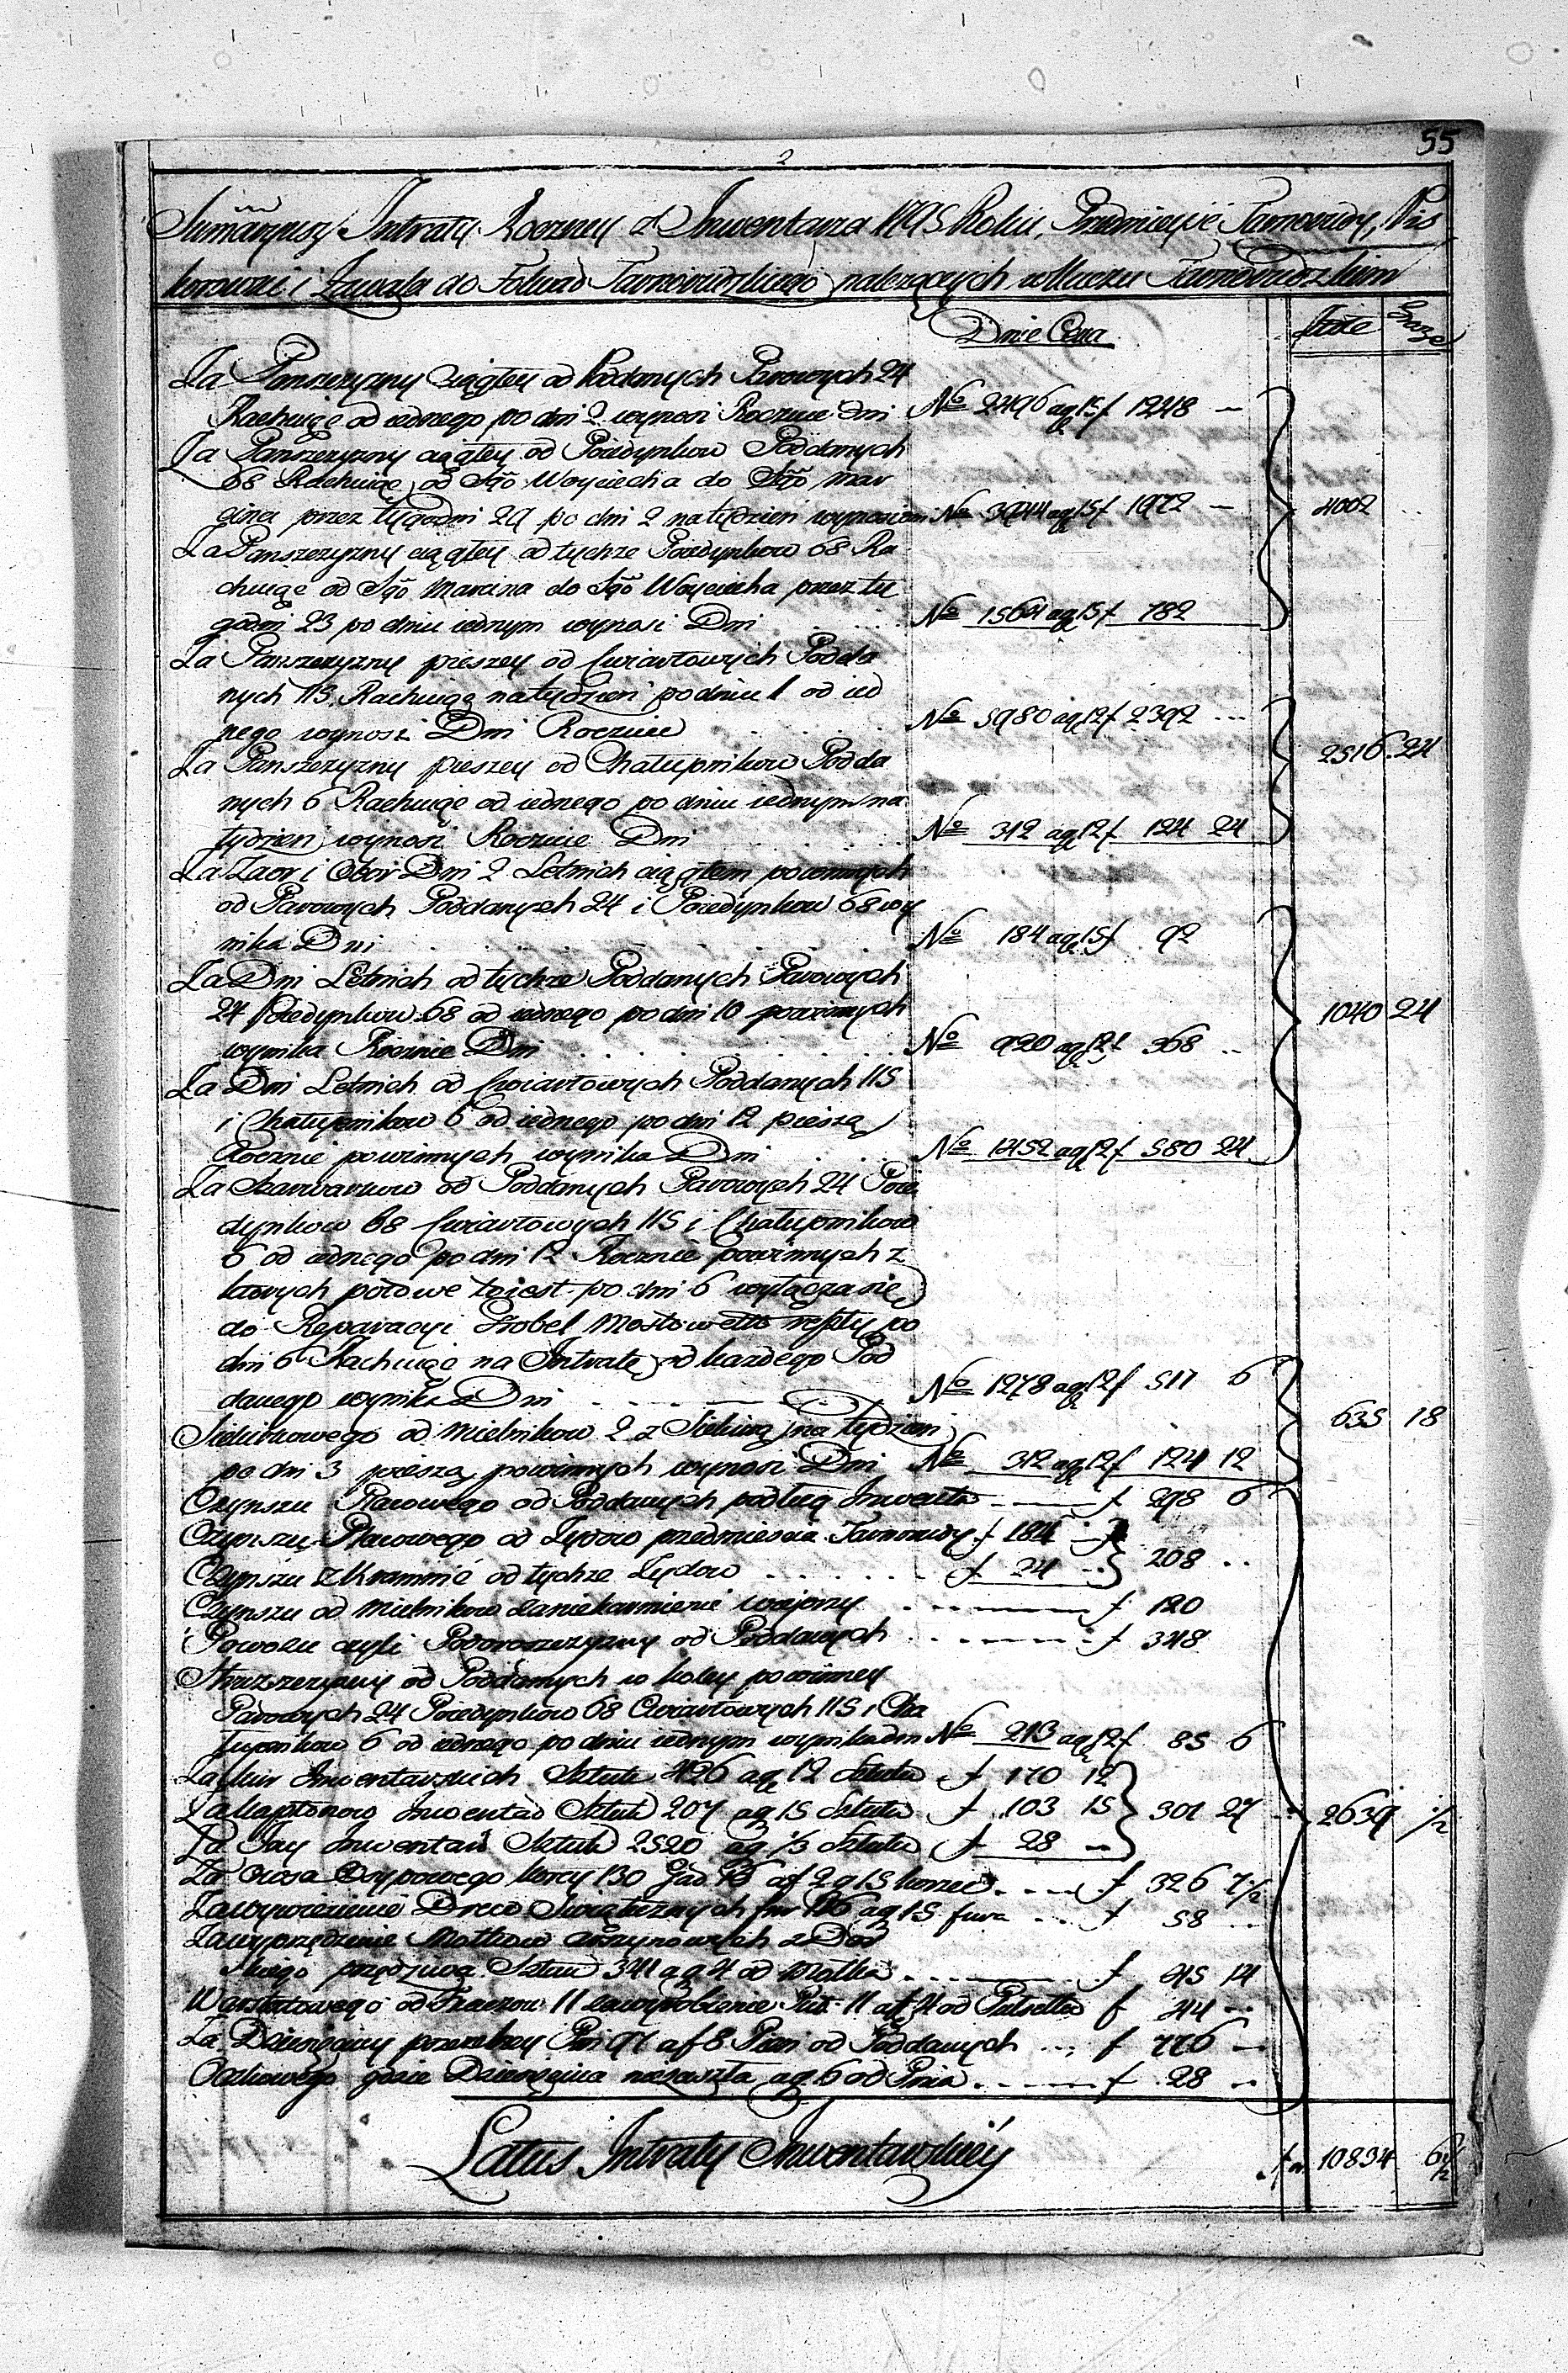 55
2
Sumaryusz Intraty Roczney z Inwentarza 1795 Roku, Przedmieście Tarnorudy, Pis
korowki i Zawala do Folwar Tarnorudzkiego należących w Kluczu Tarnorudzkim
Dnie Cena
Złote Grosze
Za Panszczyzny ciągłey od Poddanych Parowych 24
Rachuiąc od iednego po dni 2 wynosi Rocznie dni No 2496 a g 15 f 1248 —
Za Panszczyzny ciągłey od Poiedynkow Poddanych
68 Rachuiąc od Sgo Woyciecha do Sgo Mar
cina przez tygodni 29 po dni 2 na tydzien wynosi No 3944 a g 15 f 1972 — 4002 ..
Za Panszczyzny ciągłey od tychże Poiedynkow 68 Ra
chuiąc od Sgo Marcina do Sgo Woyciecha przez ty
godni 23 po dniu iednym wynosi Dni No 1564 a g 15 f 782
Za Panszczyzny pieszey od Cwiartowych Podda
nych 115 Rachuiąc na tydzien po dniu 1 od ied
nego wynosi Dni Rocznie No 5980 a g 12 f 2392 ...
2516 . 24
Za Panszczyzny pieszey od Chałupnikow Podda
nych 6 Rachuiąc od iednego po dniu iednym na
tydzien wynosi Rocznie Dni No 312 a g 12 f 124 24
Za Zaor i Obor Dni 2 Letnich ciągłem powinnych
od Parowych Poddanych 24 i Poiedynkow 68 wy
nika Dni No 184 a g 15 f 92
Za Dni Letnich od tychże Poddanych Parowych
24 Poiedynkow 68 od iednego po dni 10 powinnych 1040 24
wynika Rocznie Dni No 920 a g 12 f 368 ..
Za Dni Letnich od Cwiartowych Poddanych 115
i Chałupnikow 6 od iednego po dni 12 pieszą
Rocznie powinnych wynika Dni No 1452 a g 12 f 580 24
Za Szarwarkow od Poddanych Parowych 24 Poie
dynkow 68 Cwiartowych 115 i Chałupnikow
6 od iednego po dni 12 Rocznie powinnych z
ktorych połowe toiest po dni 6 wyłącza się
do Reparacyi Grobel Mostow etto reszty po
dni 6 Rachuiąc na Intratę od każdego Pod
danego wynika Dni No 1278 a g 12 f 511 6
635 18
Siekirkowego od Mielnikow 2 z Siekirą na tydzien
po dni 3 pieszą powinnych wynosi Dni No 312 a g 12 f 124 12
Czynszu Placowego od Poddanych podług Inwenta f 298 6
Czynszu Placowego od Zydow przedmiescia Tarnorudy f 184
Czynszu z Kramnic od tychże Zydow f 24 208 ..
Czynszu od Mielnikow f 120
Powozu czyli Podoroszczyzny od Poddanych f 348
Stroszczyzny od Poddanych w koley powinney
Parowych 24 Poiedynkow 68 Cwiartowych 115 i Cha
łupnikow 6 od iednego po dniu iednym wynika dni No 213 a g 12 f 85 6
Za Kur Inwentarskich Sztuk 426 a g 12 Sztuka f 170 12
Za Kapłonow Inwentar Sztuk 207 a g 15 Sztuka f 103 15 301 27 2639 ½
Za Iay Inwentar Sztuk 2520 a g ⅓ Sztuka f 28 —
Za Owsa Osypowego korcy 130 Gar 16 a f 2 g 15 korzec f 326 7½
Za wywiezienie Drew Swiątecznych fur 116 a g 15 fura f 58 ...
Za wyprzędzenie Motkow z Dwor
skiego przędziwa Sztuk 341 a g 4 od Motka f 45 14
Warstatowego od Tkaczow 11 za wyrobienie Puł 11 a f 4 od Pulsetka f 44 —
Za Dziesięciny pszczelney Pni 97 a f 8 Pień od Poddanych f 776 —
Oczkowego gdzie Dziesięcina nieszła a g 6 od Pnia f 28 —
Latus Intraty Inwentarskiey f 10834 6½